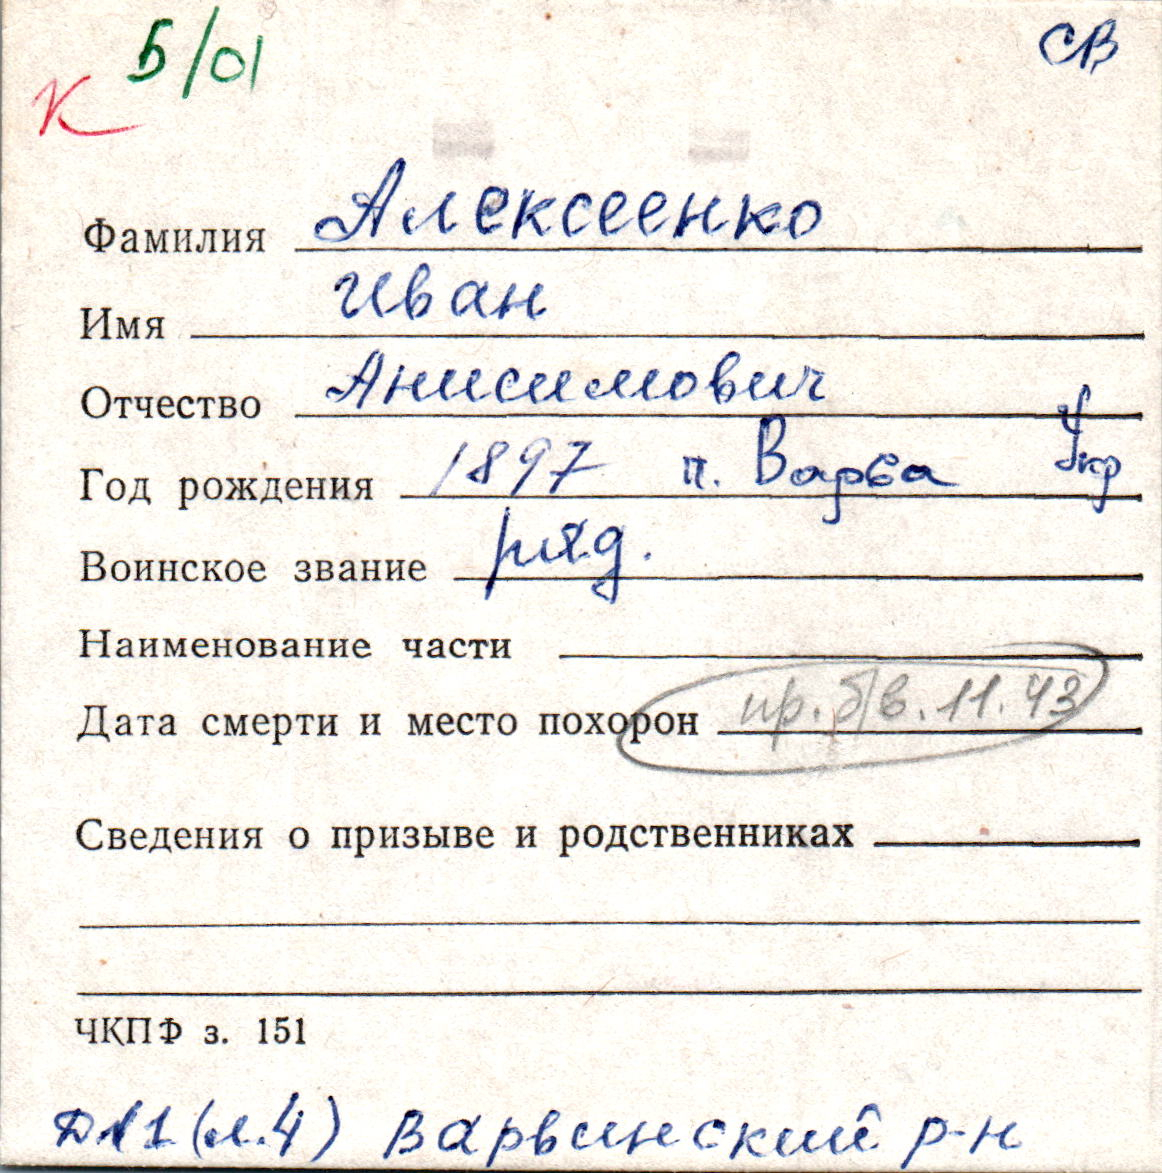 Б/01 СВ
К
Фамилия Алексеенко
Имя Иван
Отчество Анисимович
Год рождения 1897 п. Варва Укр
Воинское звание ряд.
Наименование части
Дата смерти и место похорон пр. б/в. 11.43
Сведения о призыве и родственниках
ЧКПФ з. 151
(л.4) Варвинский р-н